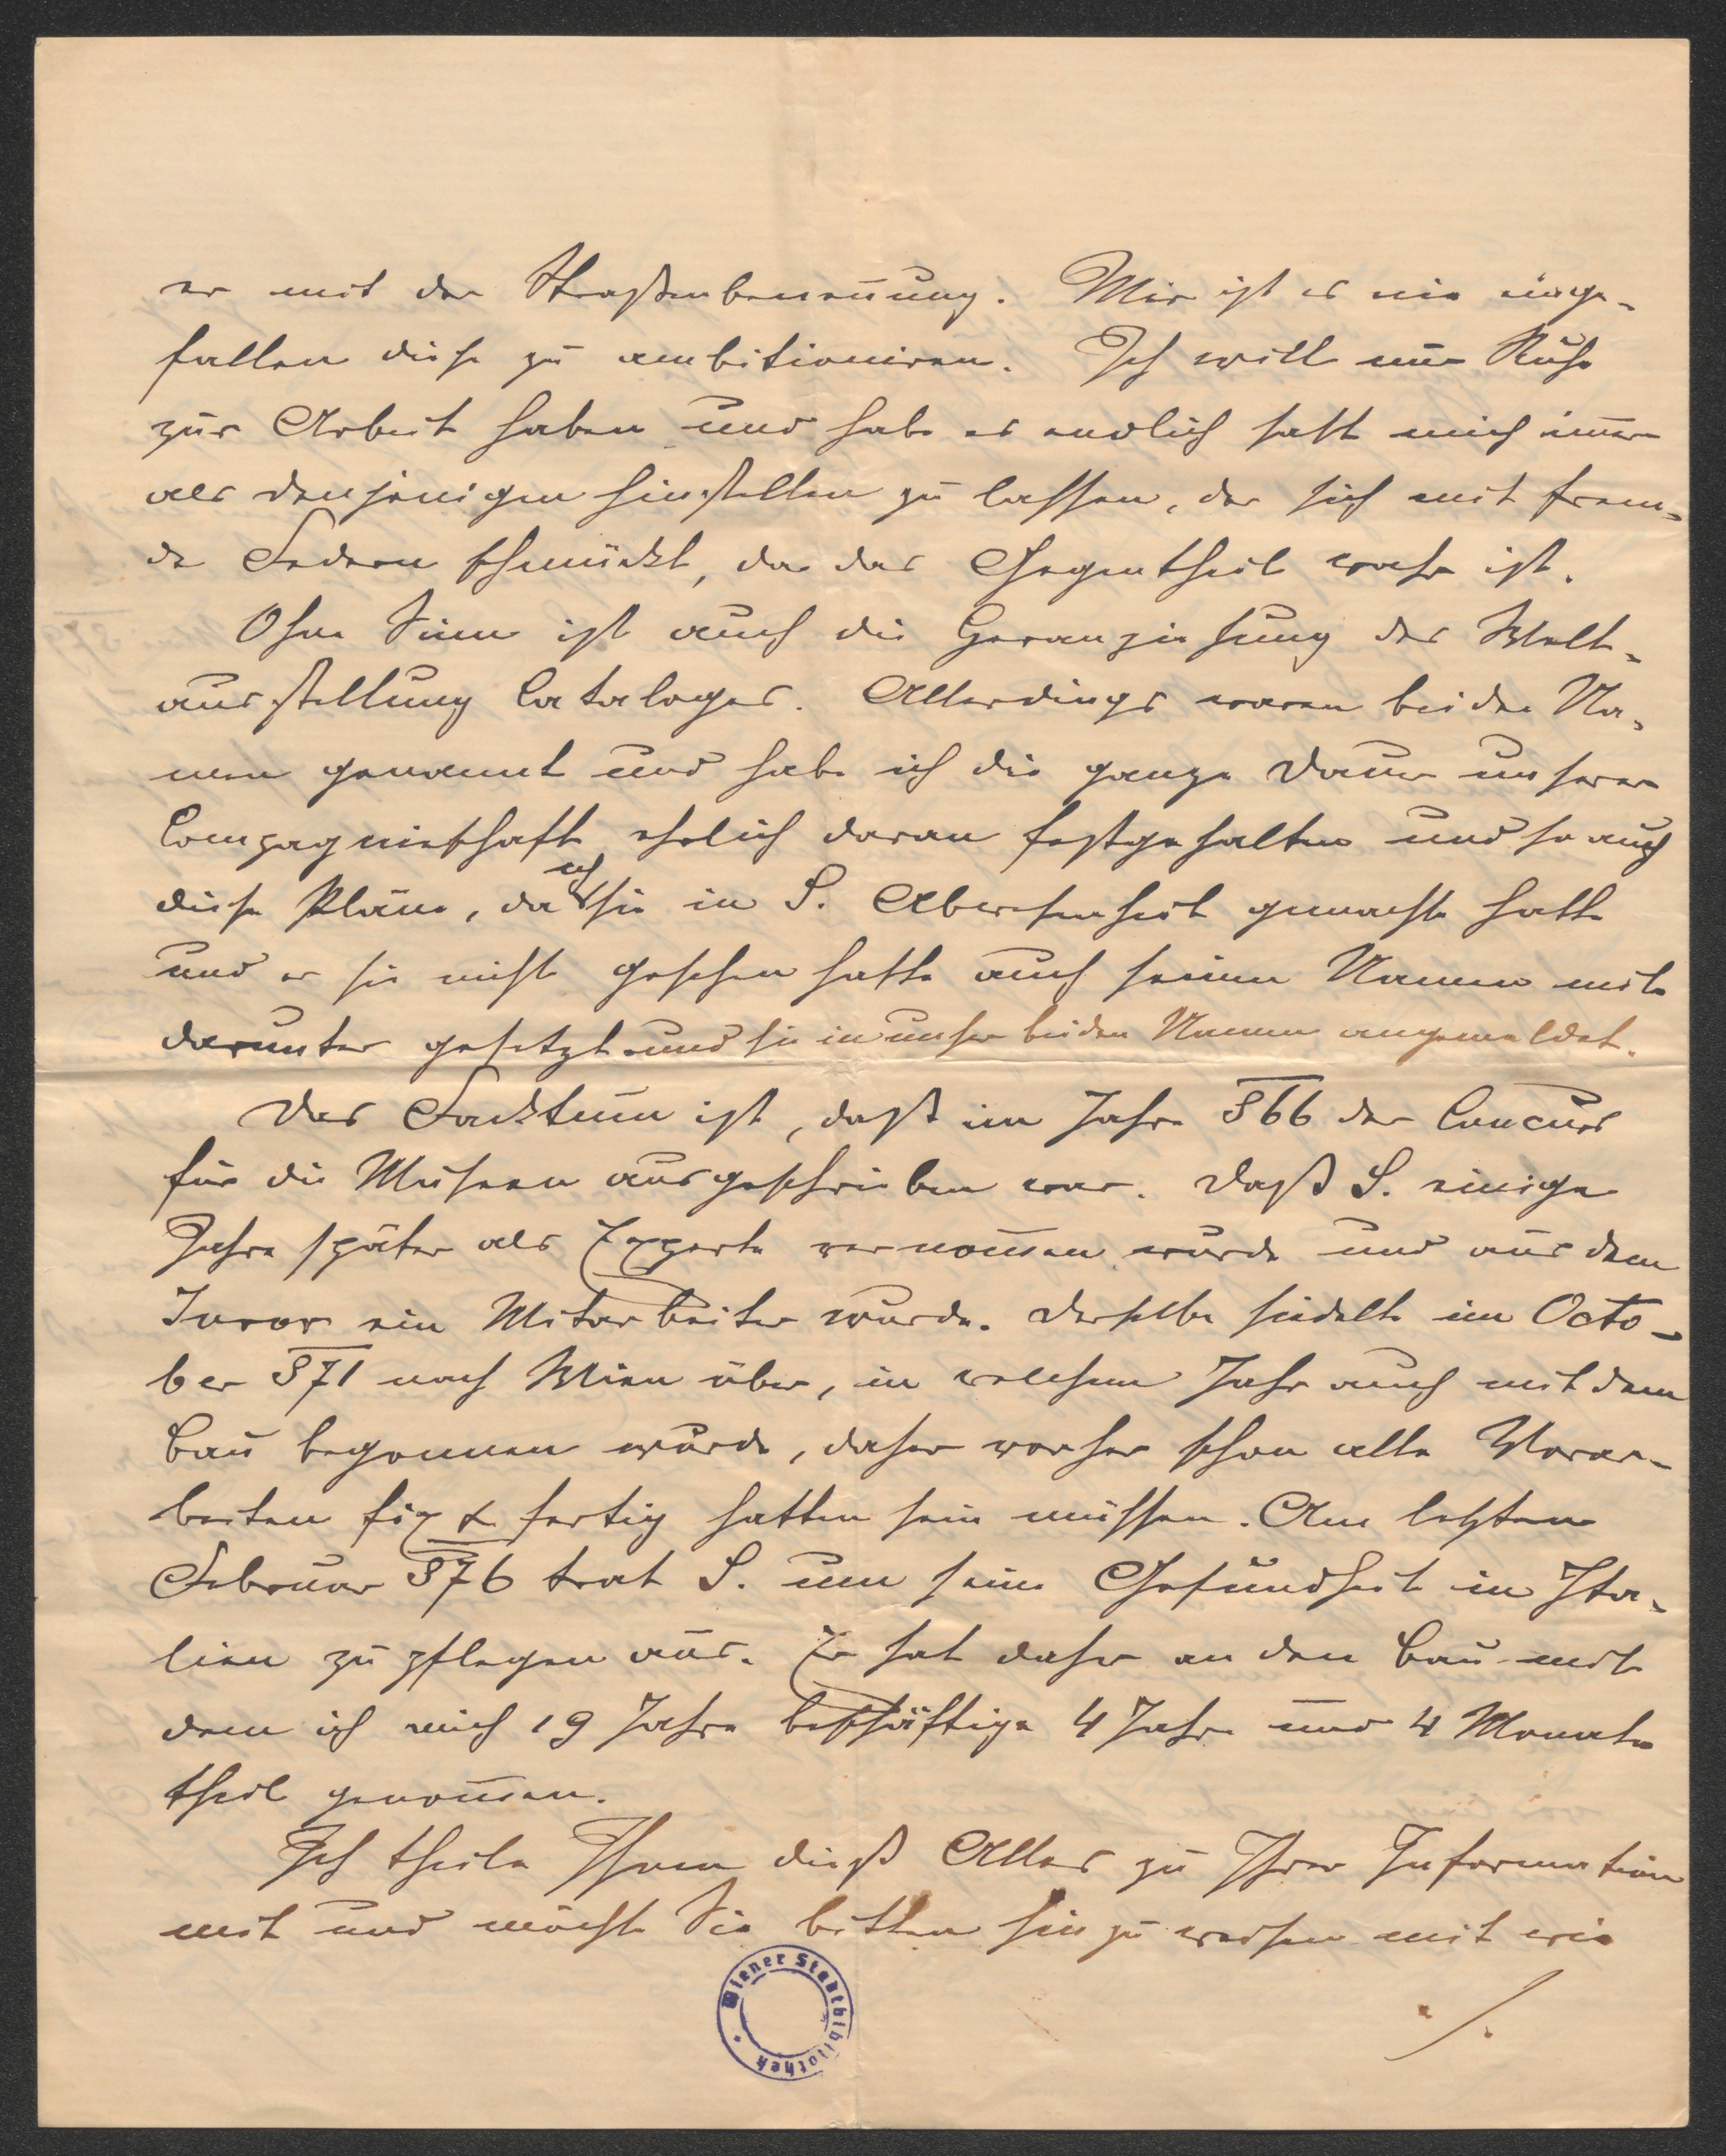 er mit der Straßenbenen̄ung. Mir ist es nie einge-
fallen diese zu ambitioniren. Ich will nur Ruhe
zur Arbeit haben und habe es endlich satt mich im̄er
als denjenigen hinstellen zu lassen, der sich mit frem-
de Federn schmückt, da das Gegentheil wahr ist.
Ohne Sinn ist auch die Heranziehung des Welt-
ausstellung Cataloges. Allerdings waren beide Na-
men genannt und habe ich die ganze Dauer unserer
Compagnieschaft ehrlich daran festgehalten und so auch
diese Pläne, da ich sie in S. Abwesenheit gemacht hatte
und er sie nicht gesehen hatte auch seinen Namen mit
darunter gesetzt und sie in unser beider Namen angemeldet.
Das Facktum ist, daß im Jahre 866 der Concurs
für die Museen ausgeschrieben war. Daß S. einige
Jahre später als Experte vernom̄en wurde und aus dem
Juror ein Mitarbeiter wurde. Derselbe siedelte im Octo-
ber 871 nach Wien über, in welchem Jahr auch mit dem
Bau begonnen wurde, daher vorher schon alle Vorar-
beiten fix & fertig hatten sein müssen. Am letzten
Februar 876 trat S. um seine Gesundheit in Ita-
lien zu pflegen aus. Er hat daher an den Bau mit
dem ich mich 19 Jahre beschäftige 4 Jahre und 4 Monate
theil genom̄en.
Ich theile Ihnen dieß Alles zu Ihrer Information
mit und möchte Sie bitten hinzuweisen mit wie
./.
Wiener Stadtbibliothek